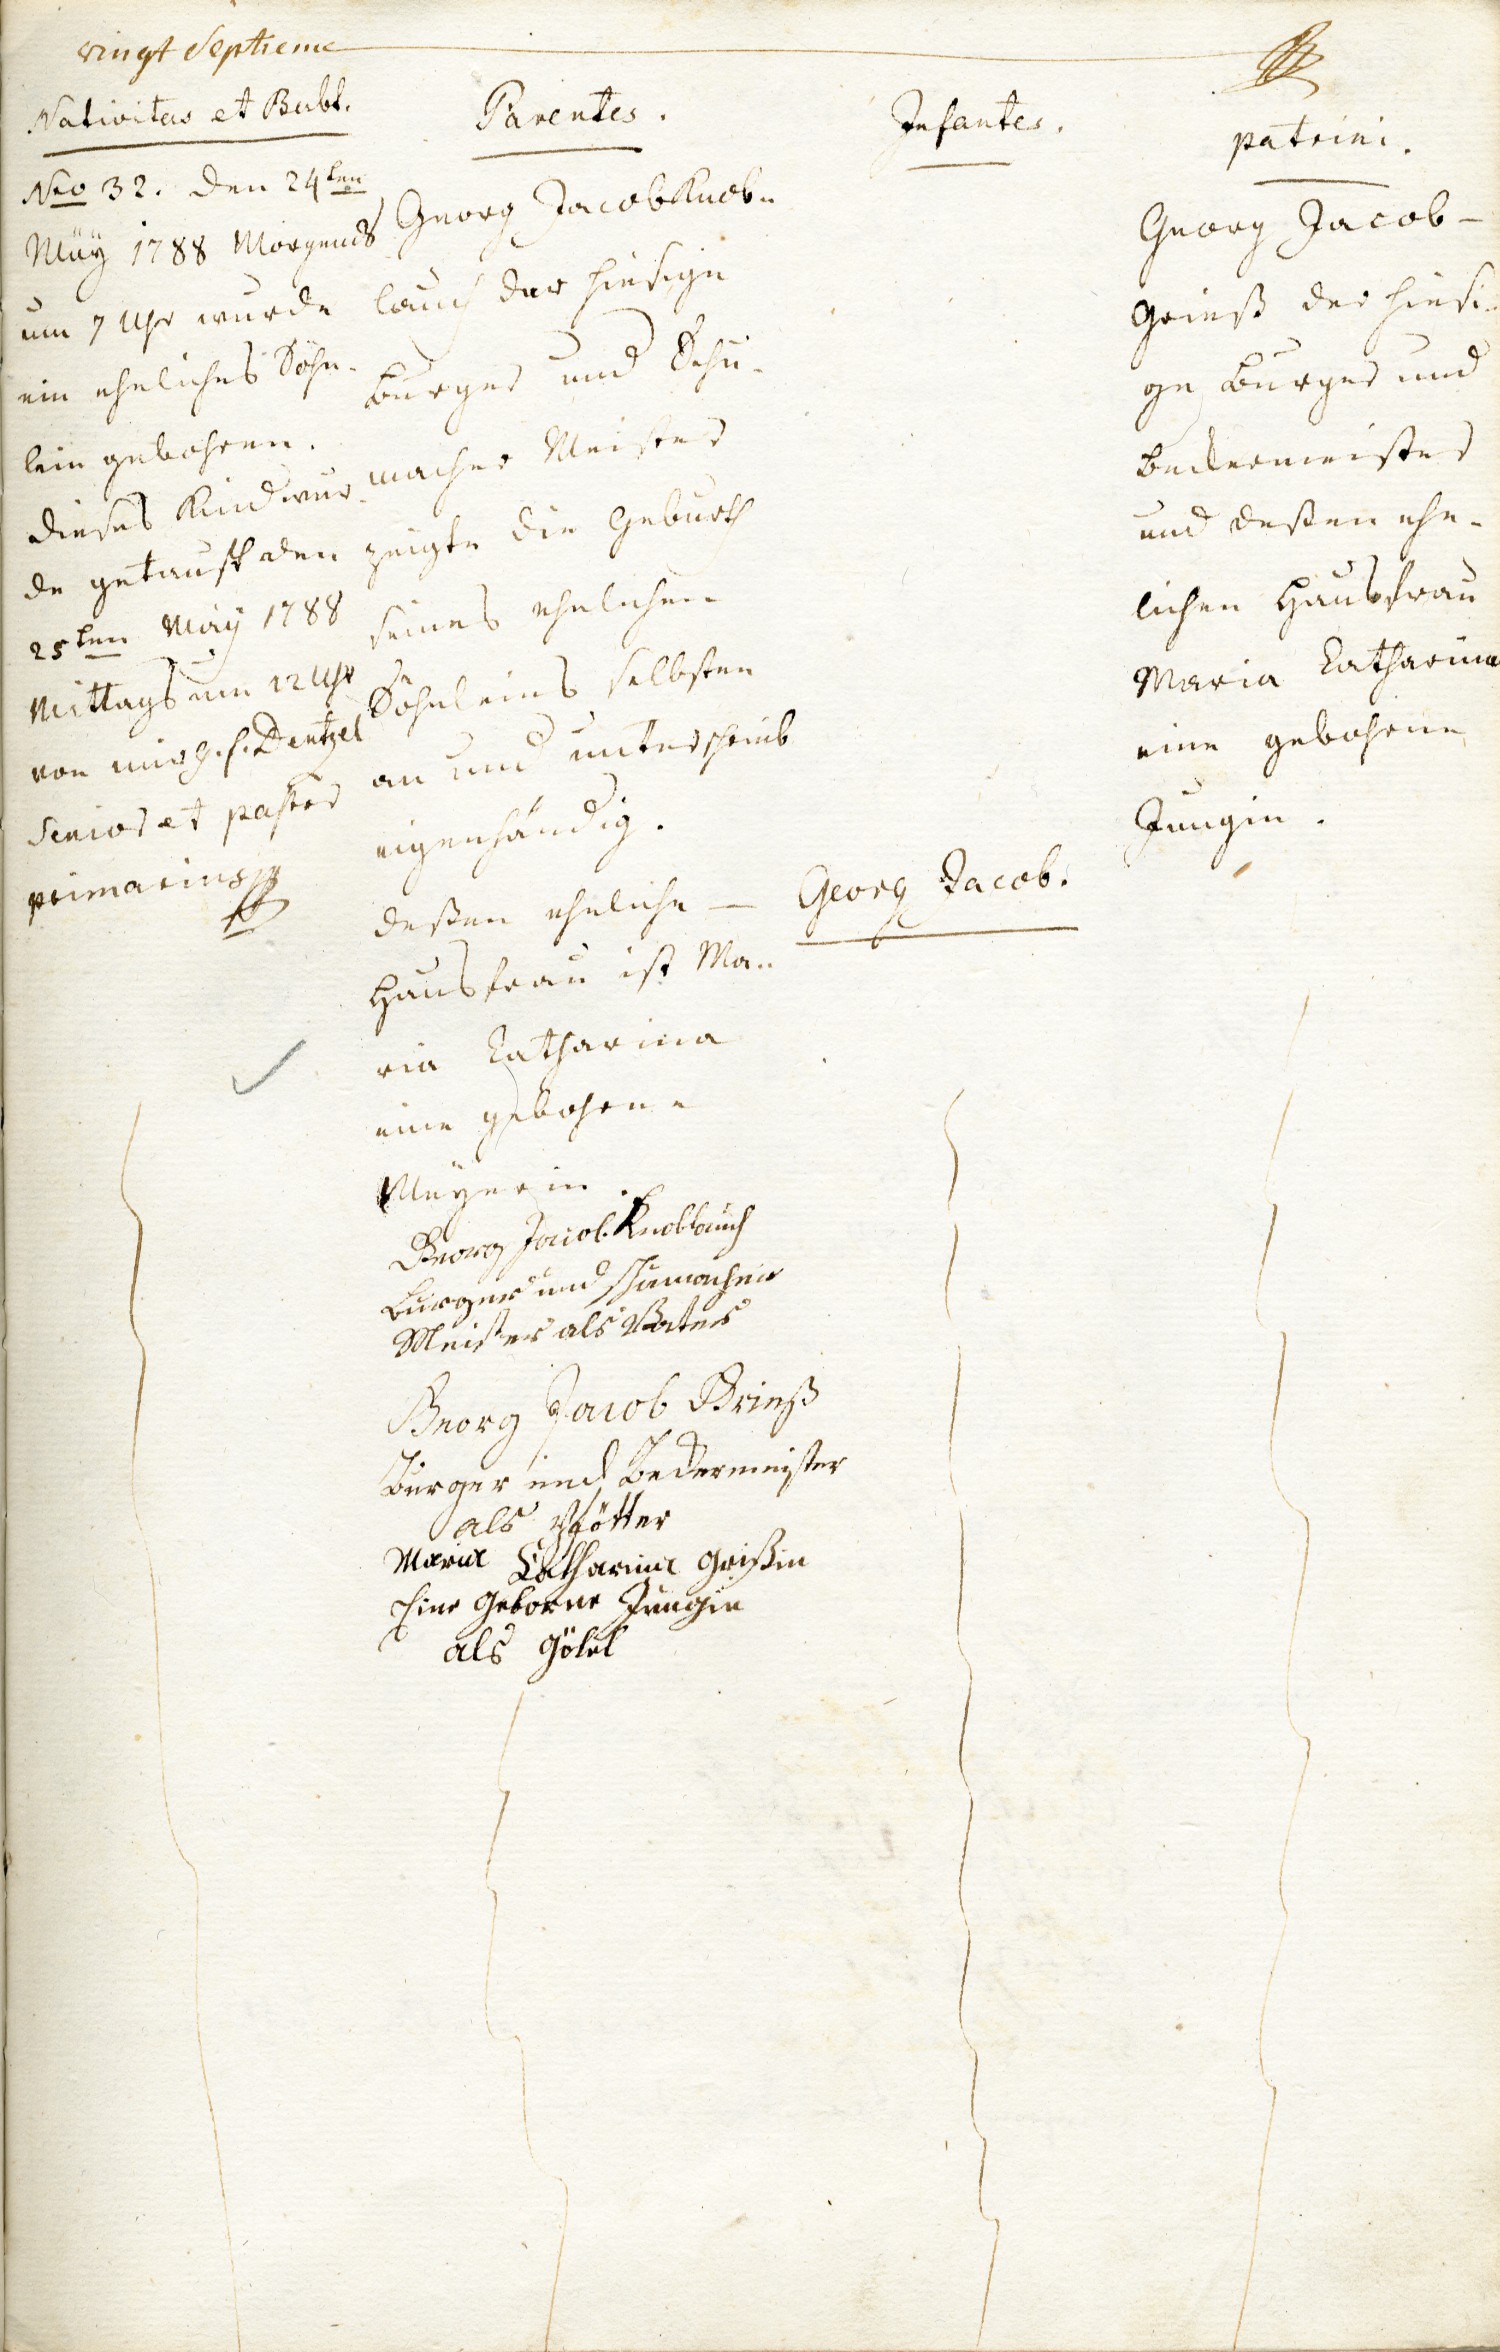 vingt Septieme
Nativitas et Babt.
Nro 32. den 24ten
Mäÿ 1788 Morgends
um 7 Uhr wurde
ein eheliches Söhn-
lein gebohren.
dieses Kind wur-
de getauft den
25ten Maÿ 1788
Mittags um 12 Uhr
von mir Dentzel
Senior et pastor
primarius
Parentes.
Georg Jacob Knob-
lauch der hiesige
burger und Schu-
macher Meister
zeigte die Geburth
seines ehelichen
Söhnleins selbsten
an und unterschrieb
eigenhändig.
deßen eheliche
Hausfrau ist Ma-
ria Catharina
eine gebohrne
Meÿerin.
Georg Jacob Knoblauch
burger und schumacher
Meister als Vatter
Georg Jacob Grieß
Burger und Beckermeister
als Pfötter
Maria Catharina Grißin
Eine Geborne Jungin
als Götel
Infantes.
Georg Jacob.
patrini.
Georg Jacob
Grieß der hiesi-
ge burger und
beckermeister
und deßen ehe-
lichen Hausfrau
Maria Catharina
eine gebohrne
Jungin.